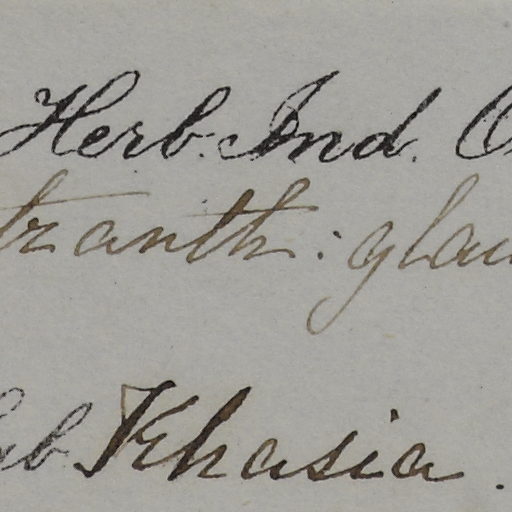 Herb. Ind. O
tranth: glau
Hab. Khasia.